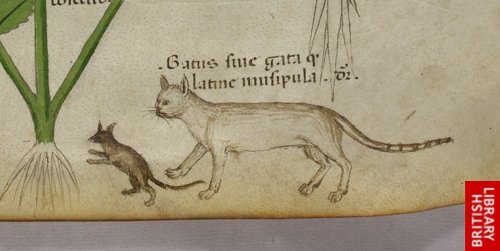 Gatus siue gata q
latine musipula. dr.
BRITISH
LIBRARY